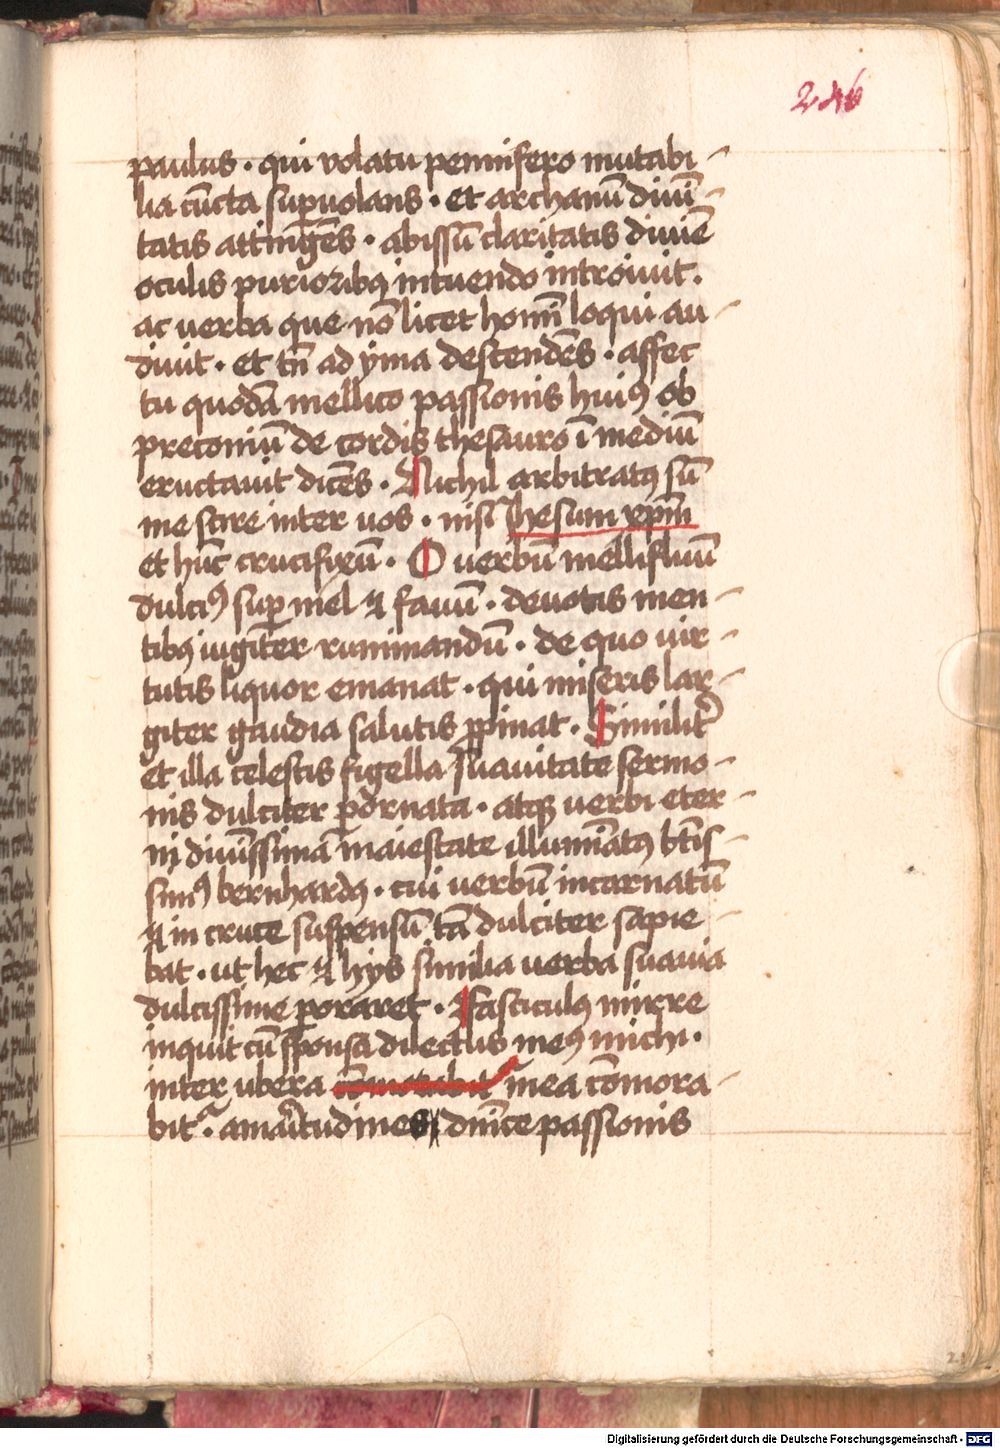 246
paulus · qui volatu pennifero mutabi-
lia cūcta suꝑuolans · et archanū diui-
tatis attingēs · abissū claritatis diuiē
oculis purioribꝰ intuendo introiuit.
ac uerba que nō licet homī loqui au-
diuit · et tn̄ ad yma descendēs · affec
tu quodā mellico passionis huiꝰ ob
preconiū de cordis thesauro ī mediū
eructauit dicēs · Nichil arbitratꝰ sū
me scire inter uos · nisi Ihesum xpm̄
et hūc crucifixū · O verbū mellifluū
dulciꝰ suꝑ mel ⁊ fauū · deuotis men-
tibꝰ iugiter ruminandū · de quo uir-
tutis liquor emanat · qui miseris lar-
giter gaudia salutis ꝓpinat · Similit̄
et illa celestis figella suauitate sermo-
nis dulciter ꝑornata · atqꝫ uerbi eter-
ni diuīssima maiestate illumīatꝰ bt̄is-
simꝰ bernhardꝰ · cui uerbū incarnatū
⁊ in cruce suspensū tā dulciter sapie-
bat · ut hec ⁊ hys similia uerba suauia
dulcissime ꝑoraret · Fasciculus mirre
inquit cū sponsa dilectus meꝰ michi ·
inter ubera mea cōmora-
bit᷑ · amaritudines dnīce passionis
Digitalisierung gefördert durch die Deutsche Forschungsgemeinschaft - DFG